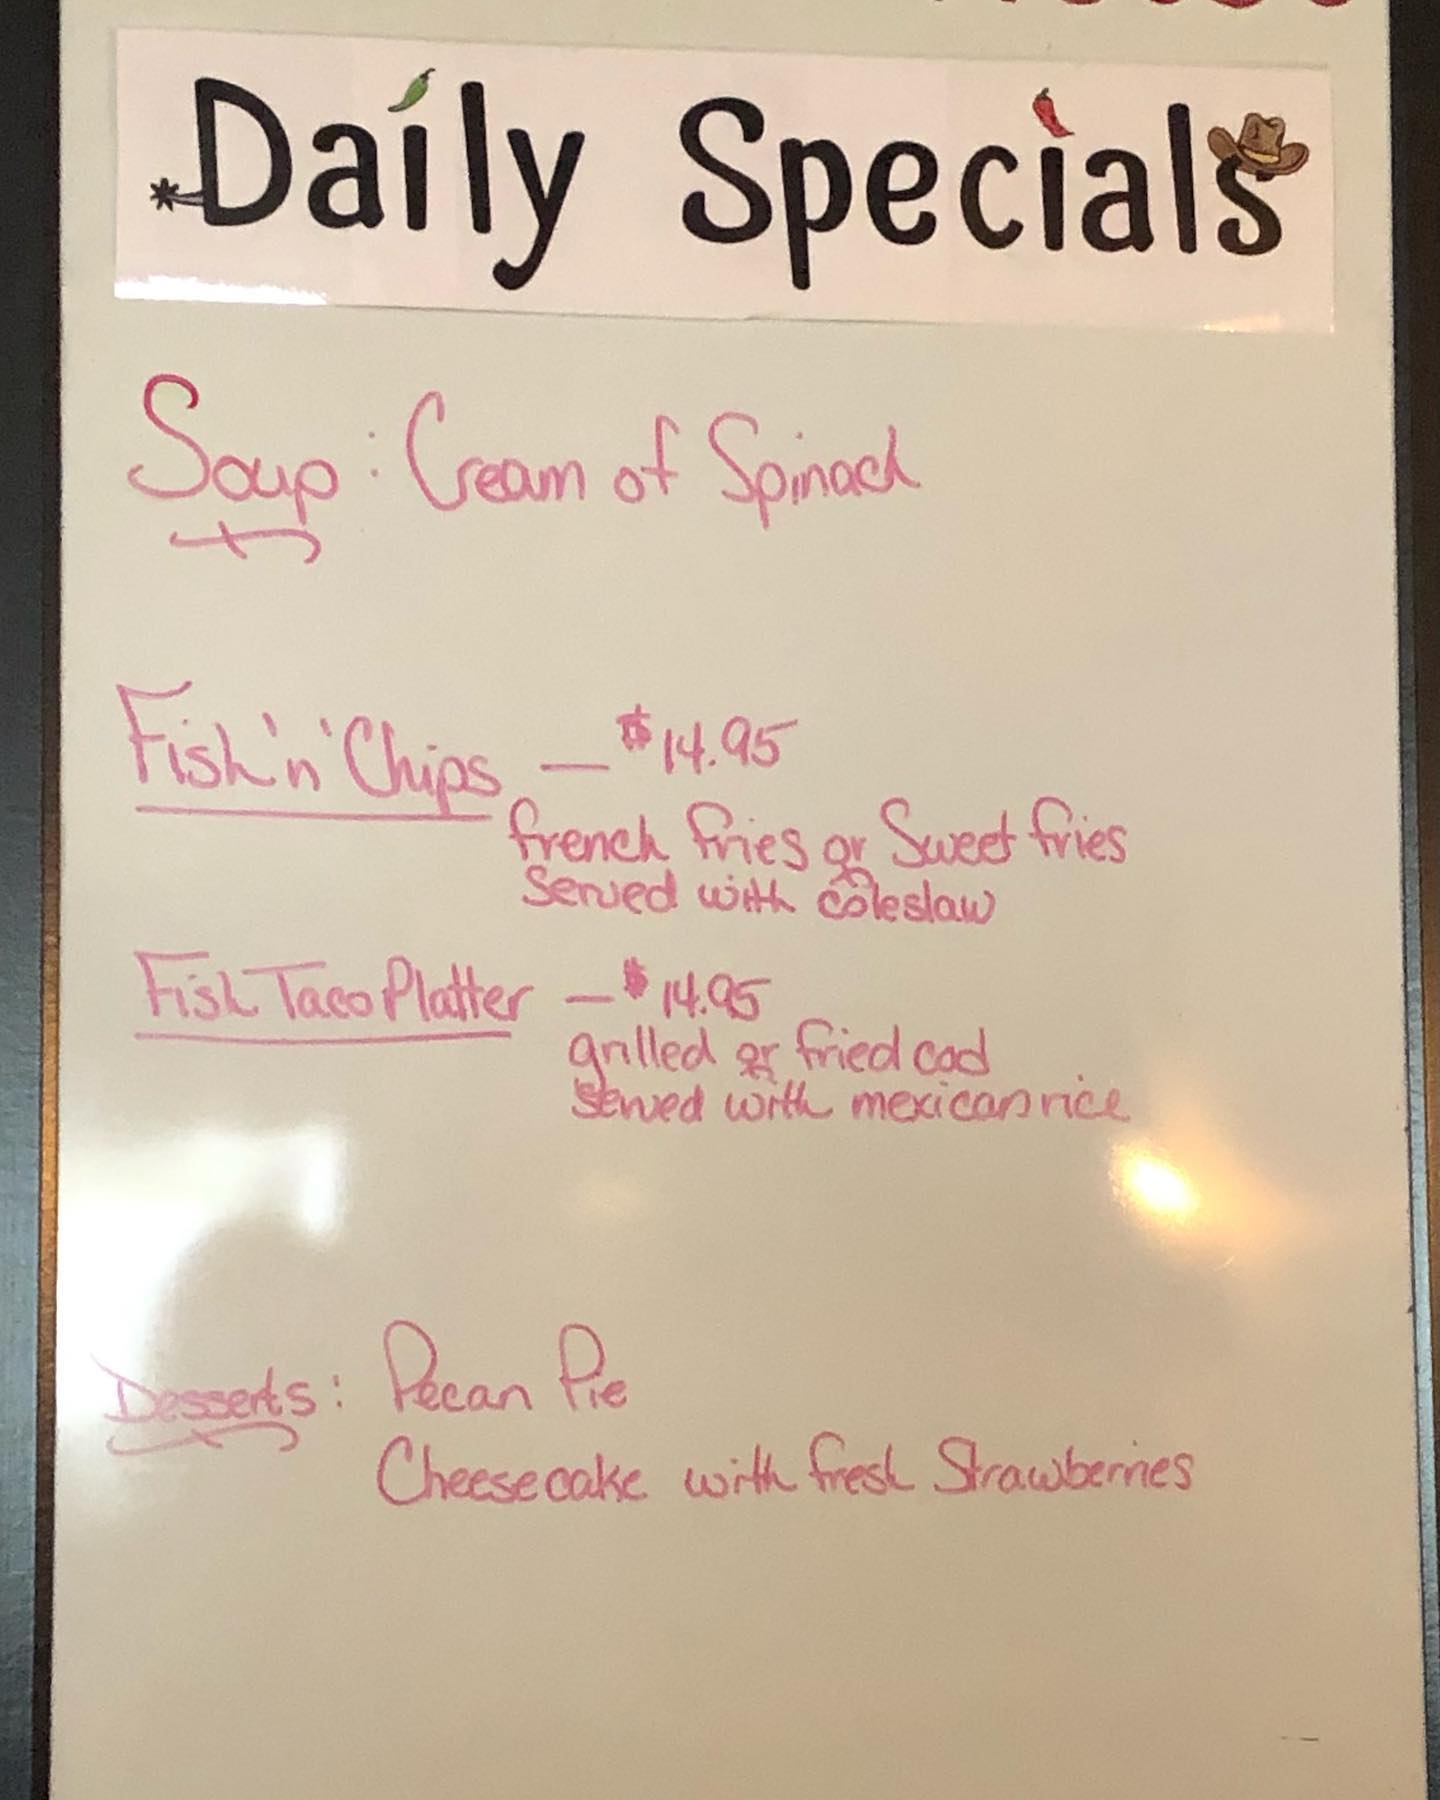 Daily Specials
Soup: Cream of Spinach
Fish 'n' Chips — $14.95
french fries or Sweet fries
Served with coleslaw
Fish Taco Platter — $14.95
grilled or fried cod
served with mexican rice
Desserts: Pecan Pie
Cheesecake with fresh Strawberries